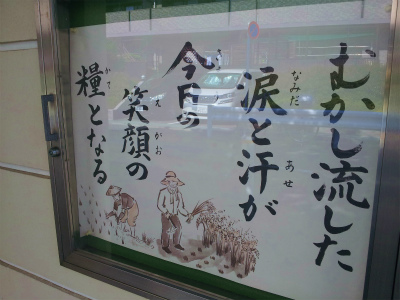 むかし流した
涙と汗が
なみだ
あせ
今日の
きょう
笑顔の
えがお
糧となる
かて